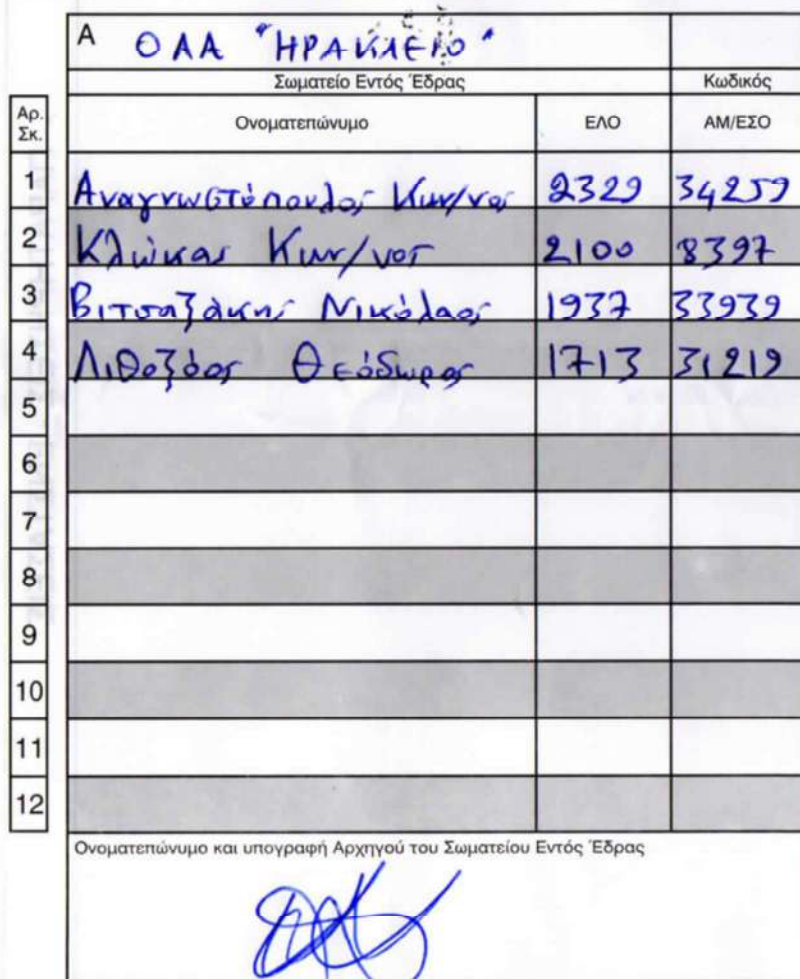 Α ΟΑΑ "ΗΡΑΚΛΕΙΟ"
Σωματείο Εντός Έδρας Κωδικός
Αρ. Σκ. Ονοματεπώνυμο ΕΛΟ ΑΜ/ΕΣΟ
1 Αναγνωστόπουλος Κων/νος 2329 34259
2 Κλώκας Κων/νος 2100 8397
3 Βιτσαξάκης Νικόλαος 1937 33939
4 Λιθοξόος Θεόδωρος 1713 31219
5
6
7
8
9
10
11
12
Ονοματεπώνυμο και υπογραφή Αρχηγού του Σωματείου Εντός Έδρας